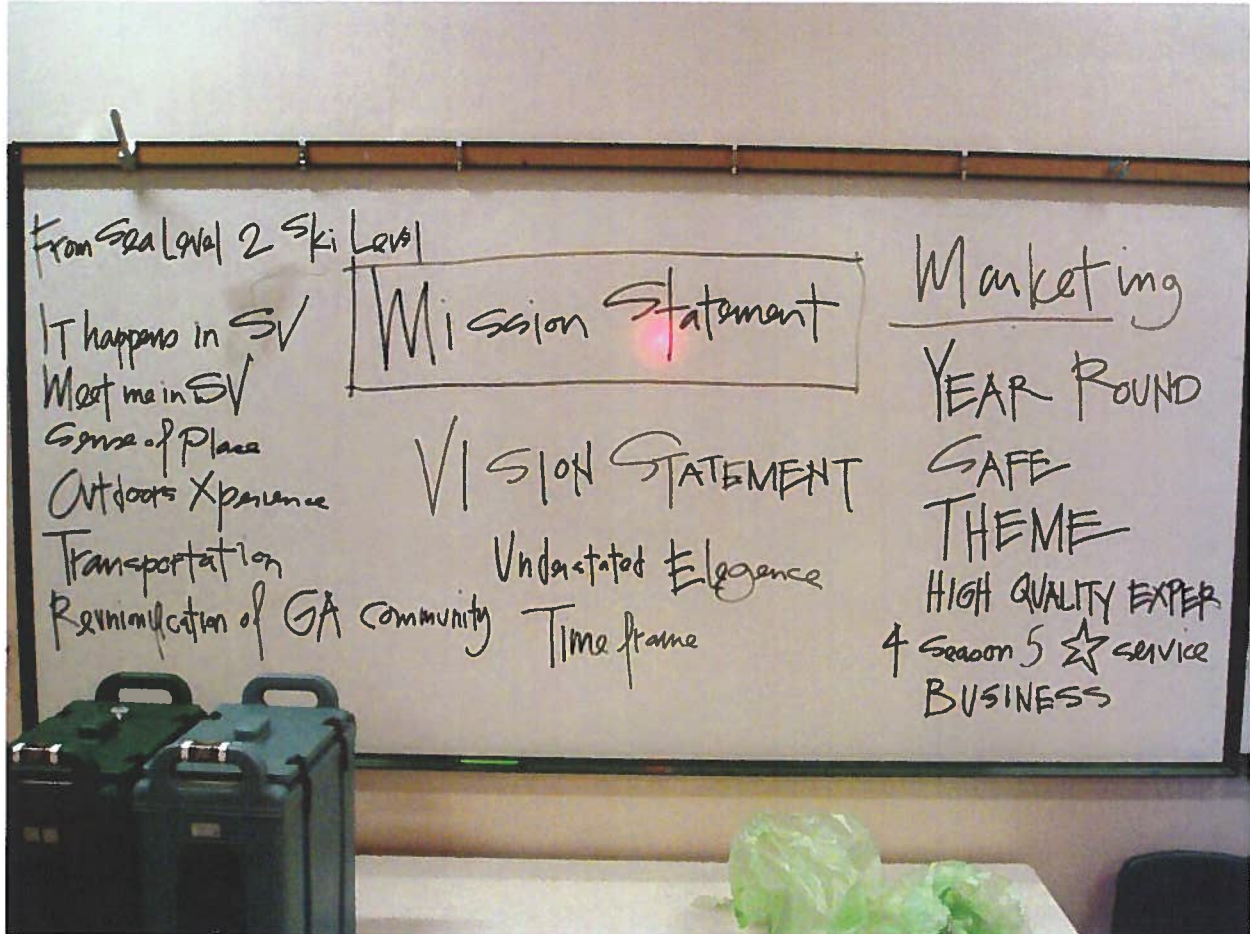 From Sea Level 2 Ski Level
IT happens in SV
Meet me in SV
Sense of Place
Outdoors Xperience
Transportation
of GA community
Mission Statement
VISION STATEMENT
Understated Elegence
Time frame
Marketing
YEAR ROUND
SAFE
THEME
HIGH QUALITY EXPER
4 Season 5 ☆ service
BUSINESS